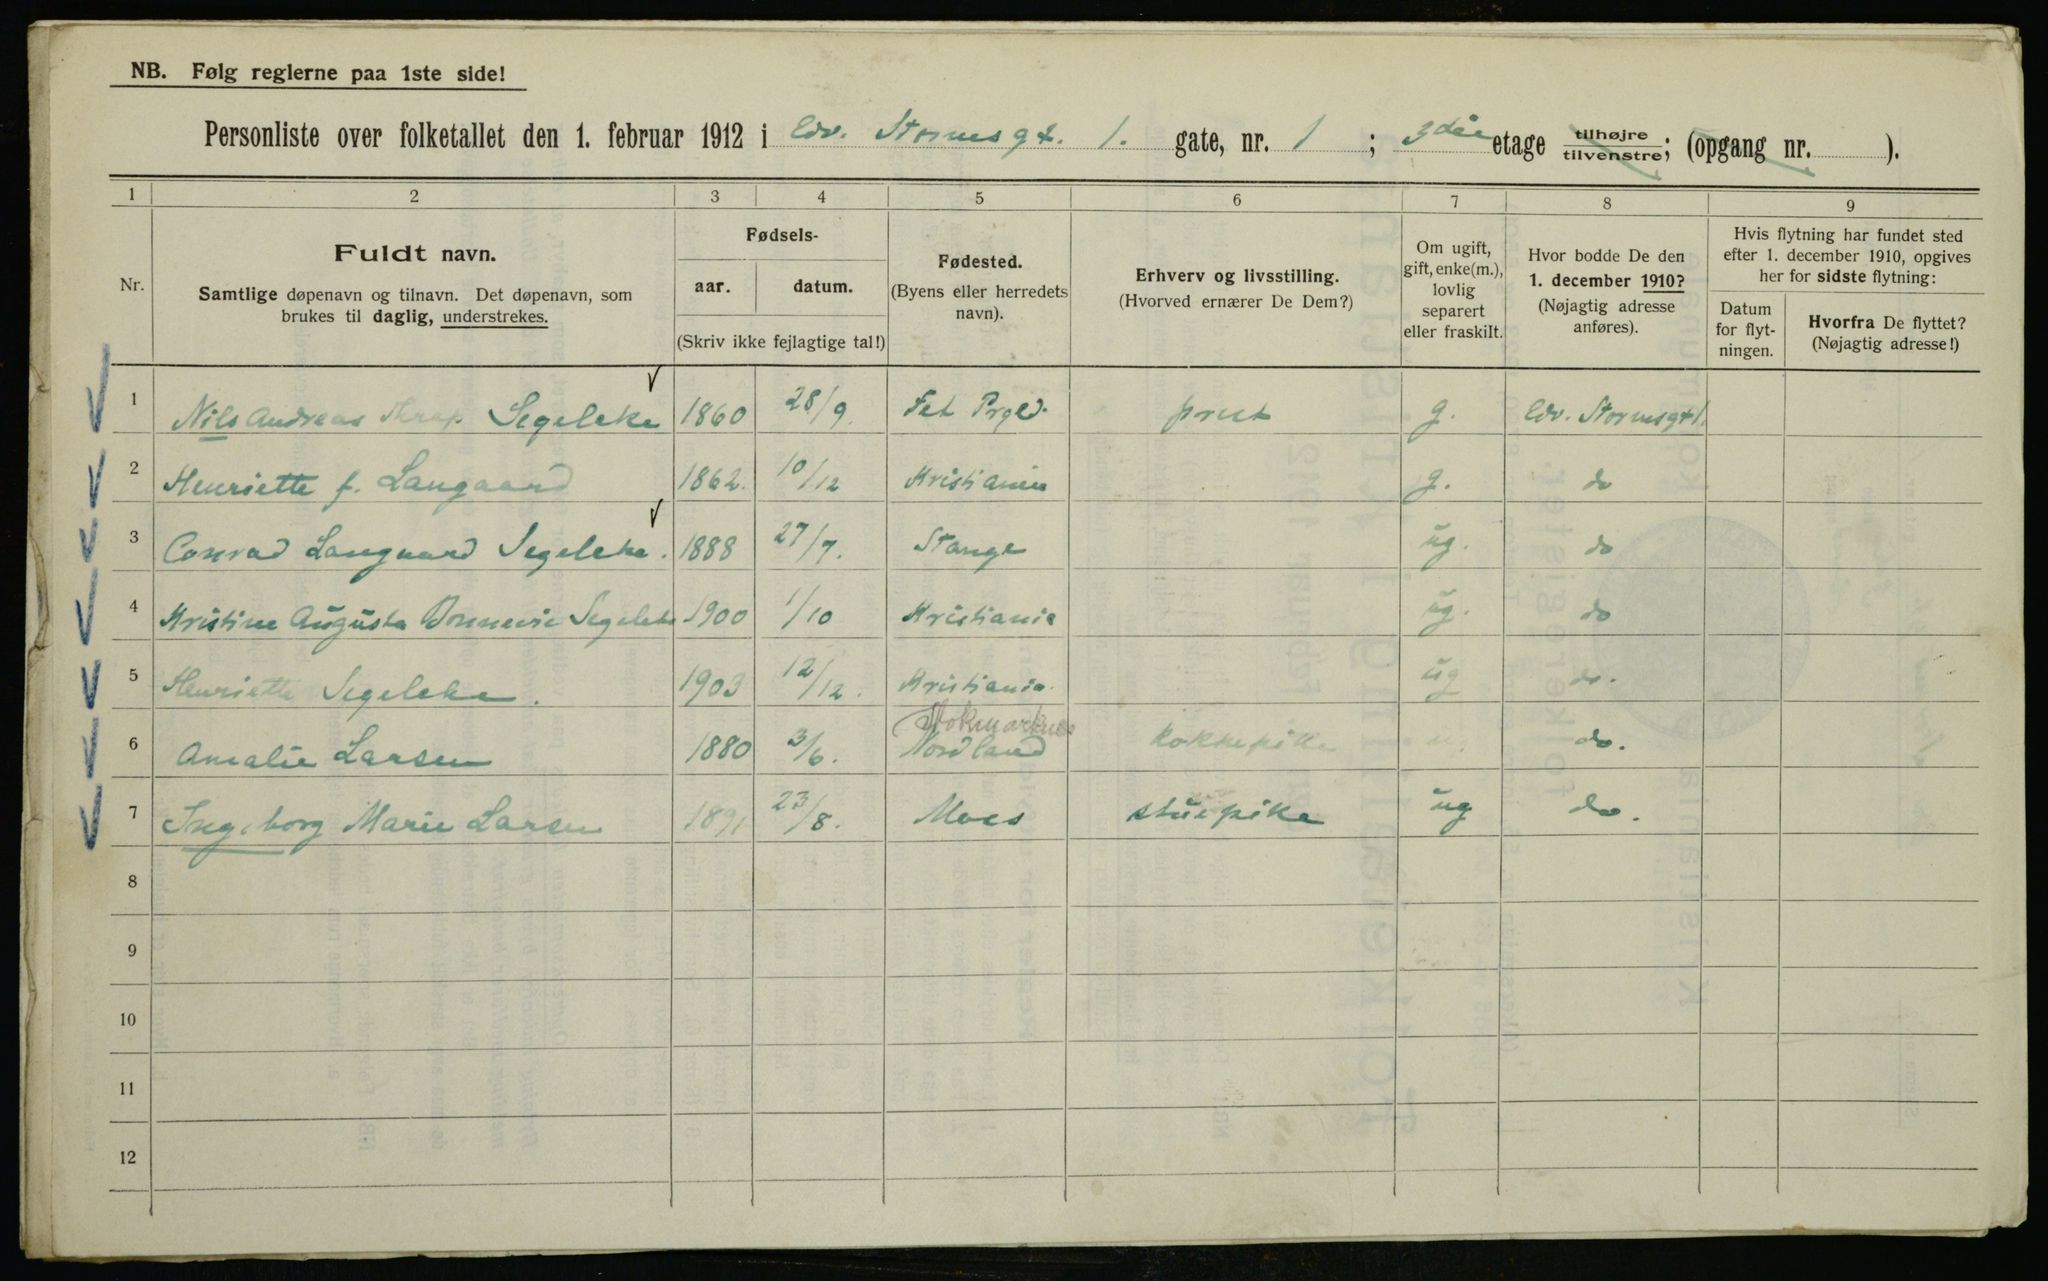 NB. Følg reglerne paa 1ste side!
Personliste over folketallet den 1. februar 1912 i Edv. Stormsgt. 1. gate, nr. 1 ; 3die etage tilhøjre / tilvenstre; (opgang nr. ).
1 2 3 4 5 6 7 8 9
Nr.
Fuldt navn.
Samtlige døpenavn og tilnavn. Det døpenavn, som
brukes til daglig, understrekes.
Fødsels-
aar. datum.
(Skriv ikke fejlagtige tal!)
Fødested.
(Byens eller herredets
navn).
Erhverv og livsstilling.
(Hvorved ernærer De Dem?)
Om ugift,
gift, enke(m.),
lovlig
separert
eller fraskilt.
Hvor bodde De den
1. december 1910?
(Nøjagtig adresse
anføres).
Hvis flytning har fundet sted
efter 1. december 1910, opgives
her for sidste flytning:
Datum
for flyt-
ningen.
Hvorfra De flyttet?
(Nøjagtig adresse!)
1 Nils Andreas Thrap Segelcke 1860 28/9. Fet Prgld. prest g. Edv. Stormsgt 1.
2 Henriette f. Langaard 1862. 10/12 Kristiania g. do
3 Conrad Langaard Segelcke. 1888 27/7. Stange ug. do
4 Kristine Augusta Bonnevie Segelcke 1900 1/10 Kristiania ug. do
5 Henriette Segelcke. 1903 12/12. Kristiania. ug do.
Stokmarknes
6 Amalie Larsen 1880 3/6. Nordland kokkepike do.
7 Ingeborg Marie Larsen 1891 23/8. Moss stuepike ug do.
8
9
10
11
12